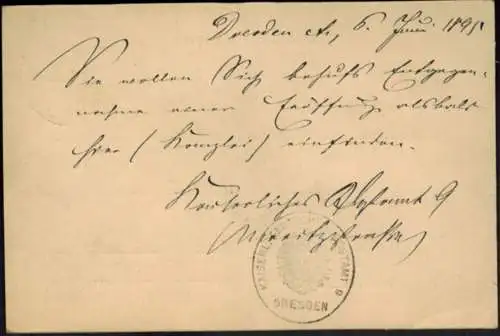 Dresden A, 6. Juni 1895
Sie wollen Sich behufs Entgegen-
nahme einer Eröffnung alsbald
hier (Kanzlei) einfinden.
Kaiserliches Postamt 9
(Moritzstraße)
KAISERL. POSTAMT 9
DRESDEN